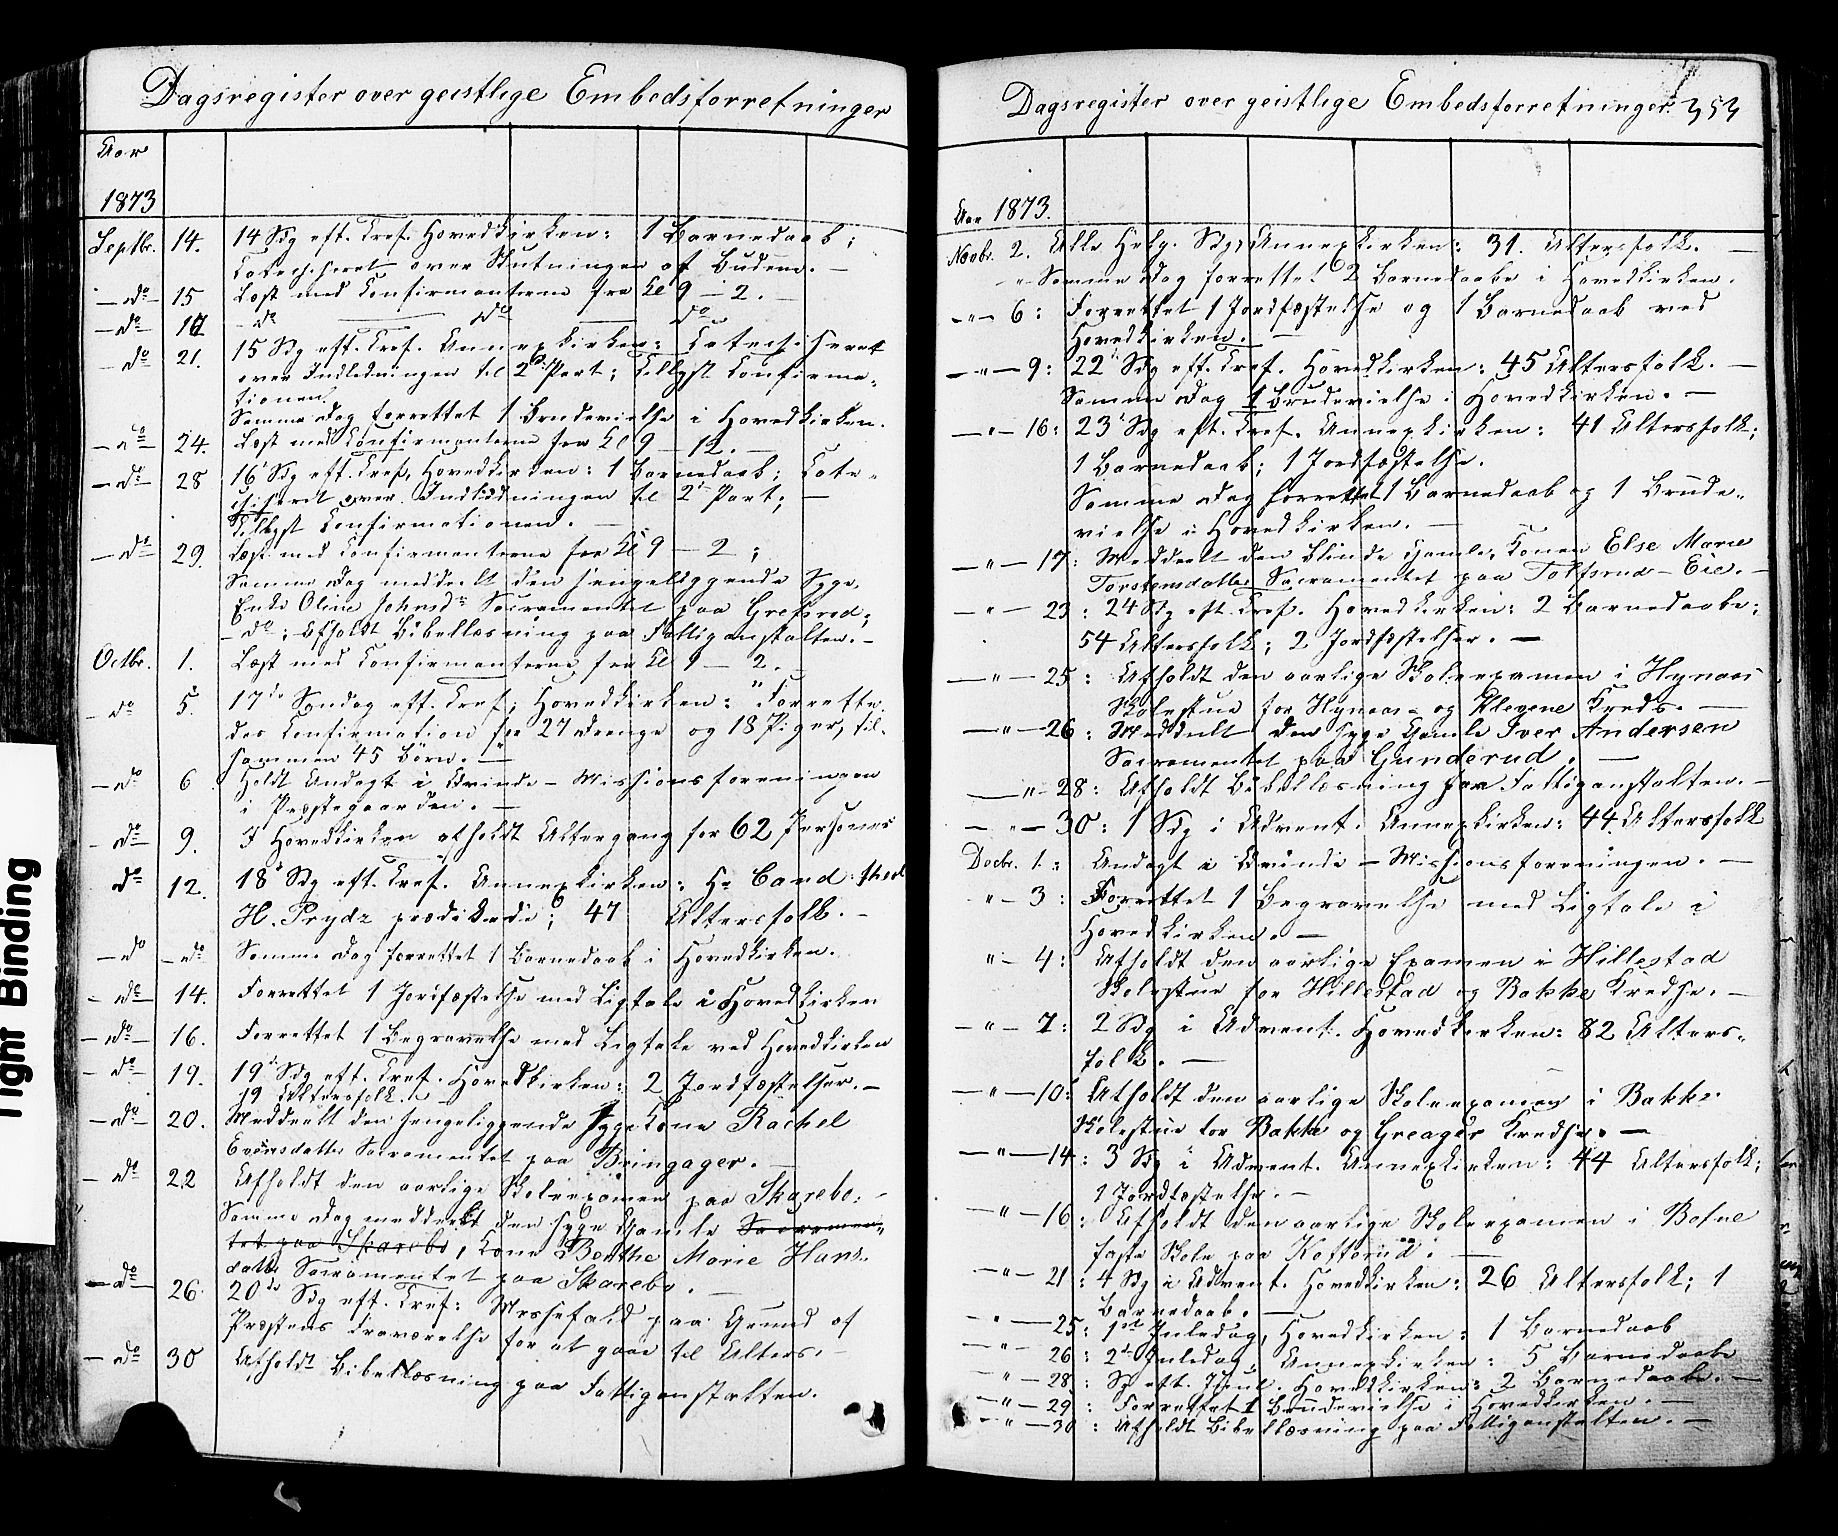 Dagsregister over geistlige Embedsforretninger
Aar
1873
Septbr. 14. 14 Sdg eft. Tref. Hovedkirken: 1 Barnedaab;
Catechiseret over Slutningen af Budene. —
— do — 15 Læst med Confirmanterne fra Kl 9 — 2. —
— do — 17 — do — do do
— do 21. 15 Sdg eft. Tref. Annexkirken: Catechiseret
over Indledningen til 2den Part; Tillyst Confirma-
tionen.
Samme Dag forrettet 1 Brudevielse i Hovedkirken.
— do 24. Læst med Confirmanterne fra Kl 9 — 12. —
— do — 28 16 Sdg eft. Tref, Hovedkirken: 1 Barnedaab; Cate-
chiseret over Indledningen til 2d Part; —
Tillyst Confirmationen. —
— do — 29. Læst med Confirmanterne fra Kl 9 — 2;
Samme Dag meddeelt den sengeliggende Syge,
Enke Oline Johnsdr Sacramentet paa Grefsrud;
— do: Afholdt Bibellæsning paa Fattiganstalten. —
Octbr. 1. Læst med Confirmanterne fra Kl 9 — 2. —
— do 5. 17de Søndag eft. Tref, Hovedkirken: " Forrette-
des Confirmation for 27 Drenge og 18 Piger, til-
sammen 45 Børn. —
— do 6 Holdt Andagt i Qvinde-Missionsforeningen
i Præstegaarden. —
— do — 9. I Hovedkirken afholdt Altergang for 62 Personer
do 12. 18d Sdg eft. Tref. Annexkirken: Hr Cand. theol
H. Prydz prædikede; 47 Altersfolk. —
— do — do Samme Dag forrettet 1 Barnedaab i Hovedkirken.
— do — 14. Forrettet 1 Jordfæstelse med Ligtale i Hovedkirken
— do — 16. Forrettet 1 Begravelse med Ligtale ved Hovedkirken
— do — 19. 19d Sdg eft. Tref. Hovedkirken: 2 Jordfæstelser. —
19 Altersfolk. —
— do — 20. Meddeelt den sengeliggende syge Kone Rachel
Evensdatter Sacramentet paa Bringager. —
— do — 22 Afholdt den aarlige Skoleexamen paa Skarebo. —
Samme Dag meddeelt den syge Gamle Sacramen-
tet paa Skarebo, Kone Berthe Marie Hans-
datter Sacramentet paa Skarebo. —
— do — 26. 20de Sdg eft. Tref: Messefald paa Grund af
Præstens Fraværelse for at gaae til Alters. —
— do 30 Afholdt Bibellæsning paa Fattiganstalten.
Dagsregister over geistlige Embedsforretninger. 353
Aar 1873.
Novbr. 2. Alle Helg. Sdg, Annexkirken: 31. Altersfolk. —
" Samme Dag forrettet 2 Barnedaabe i Hovedkirken.
— " — 6: Forrettet 1 Jordfæstelse og 1 Barnedaab ved
Hovedkirken. —
— " — 9: 22d Sdg eft. Tref. Hovedkirken: 45 Altersfolk. —
Samme Dag 1 Brudevielse i Hovedkirken. —
— " — 16: 23d Sdg eft. Tref. Annexkirken: 41 Altersfolk;
1 Barnedaab; 1 Jordfæstelse.
Samme Dag forrettet 1 Barnedaab og 1 Brude-
vielse i Hovedkirken. —
— " — 17: Meddeelt den blinde Gamle, Konen Else Marie
Torstensdatter Sacramentet paa Tolfsrud-Eie. —
— " — 23: 24 Sdg eft. Tref. Hovedkirken: 2 Barnedaabe;
54 Altersfolk; 2 Jordfæstelser. —
— " — 25: Afholdt den aarlige Skoleexamen i Hynaas
Skolestue for Hynaas- og Klevene Kreds. —
— " — 26: Meddeelt den syge Gamle Iver Andersen
Sacramentet paa Gunderud. —
— " — 28: Afholdt Bibellæsning paa Fattiganstalten. —
— " — 30: 1 Sdg i Advent. Annexkirken: 44 Altersfolk
Decbr. 1.: Andagt i Qvinde-Missionsforeningen. —
" — 3: Forrettet 1 Begravelse med Ligtale i
Hovedkirken. —
" — 4: Afholdt den aarlige Examen i Hillestad
Skolestue for Hillestad og Bakke Kredse. —
— " — 7: 2 Sdg i Advent. Hovedkirken: 82 Alters-
folk. —
— " — 10: Afholdt den aarlige Skoleexamen i Bakke
Skolestue for Bakke og Greager Kredse. —
— " — 14: 3 Sdg i Advent. Annexkirken: 44 Altersfolk;
1 Jordfæstelse. —
— " — 16: Afholdt den aarlige Skoleexamen i Bofne
faste Skole paa Kofforud. —
— " — 21: 4 Sdg i Advent. Hovedkirken: 26 Altersfolk; 1
Barnedaab. —
" — 25: 1st Juledag, Hovedkirken: 1 Barnedaab
— " — 26: 2d Juledag, Annexkirken: 5 Barnedaabe
— " — 28: Sdg eft. Juul. Hovedkirken: 2 Barnedaabe. —
— " — 29: Forrettet 1 Brudevielse i Hovedkirken. —
— " — 30: Afholdt Bibellæsning paa Fattiganstalten. —
Tight Binding